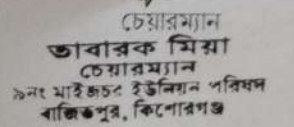 চেয়ারম্যান
তাবারক মিয়া
চেয়ারম্যান
১নং মাইজচর ইউনিয়ন পরিষদ
বাজিতপুর, কিশোরগঞ্জ